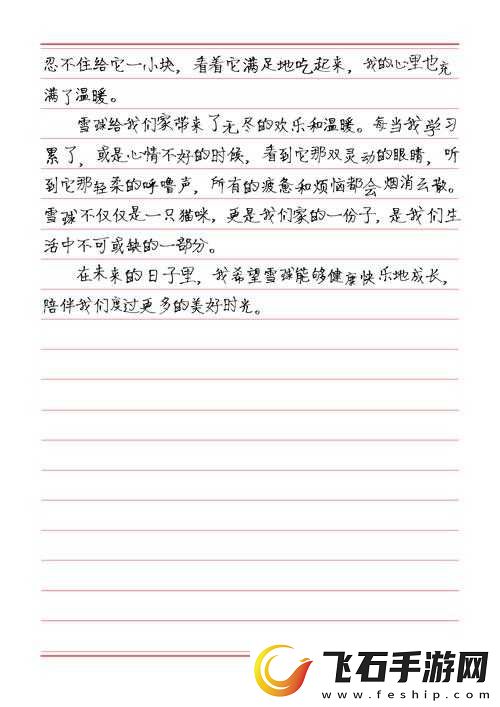 忍不住给它一小块，看着它满足地吃起来，我的心里也充
满了温暖。
雪球给我们家带来了无尽的欢乐和温暖。每当我学习
累了，或是心情不好的时候，看到它那双灵动的眼睛，听
到它那轻柔的呼噜声，所有的疲惫和烦恼都会烟消云散。
雪球不仅仅是一只猫咪，更是我们家的一份子，是我们生
活中不可或缺的一部分。
在未来的日子里，我希望雪球能够健康快乐地成长，
陪伴我们度过更多的美好时光。
飞石手游网
www.feship.com